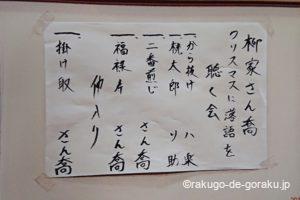 柳家さん喬
クリスマスに落語を
聴く会
一、から抜け 八楽
一、鮫太郎 り助
一、二番煎じ さん喬
一、福禄寿 さん喬
仲入り
一、掛け取 さん喬
©rakugo-de-goraku.jp